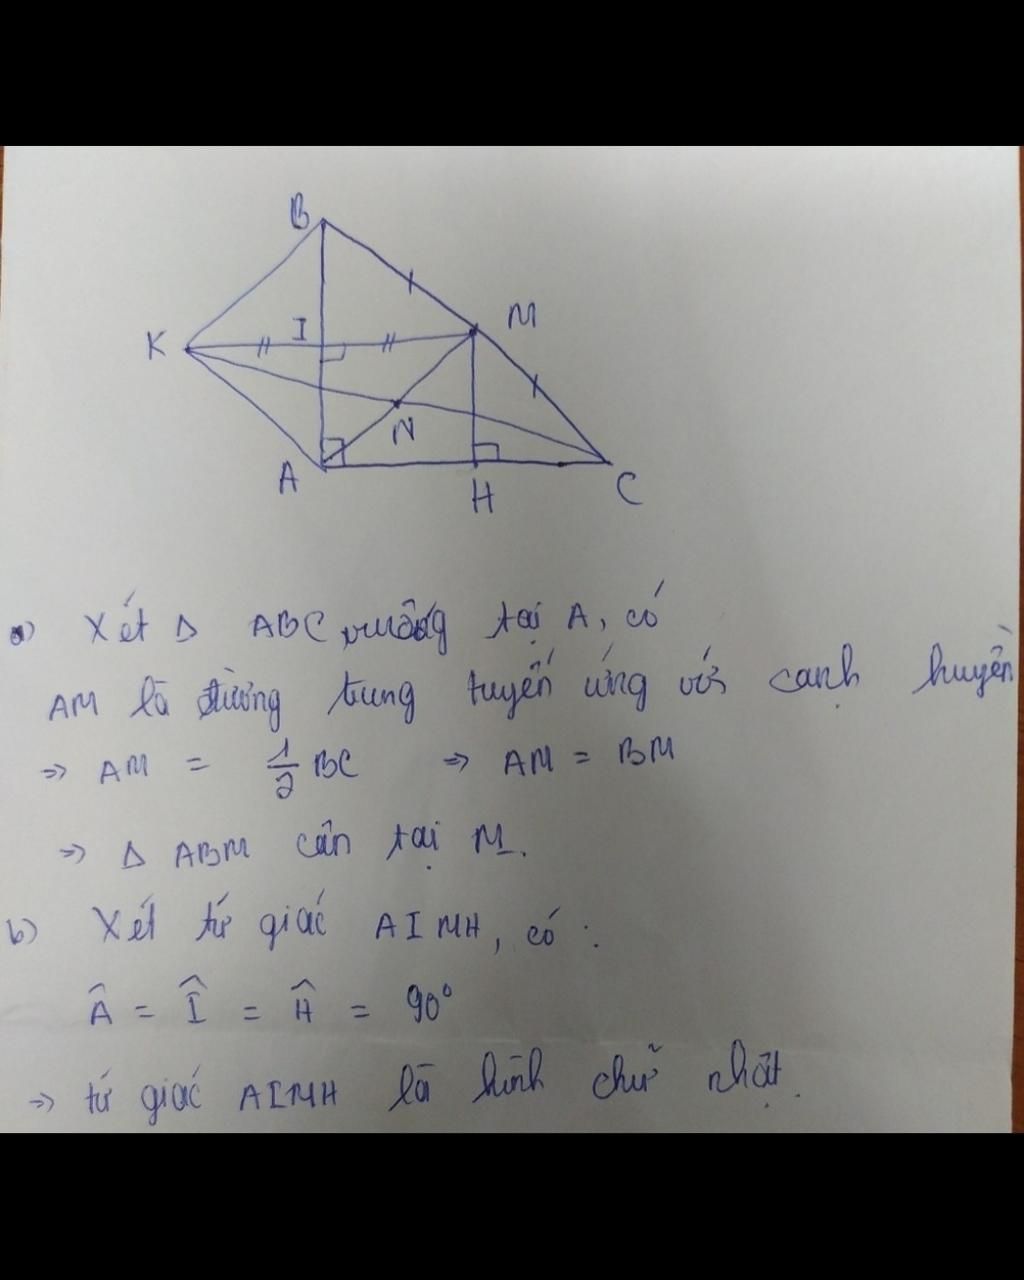 B
K
I
M
N
A
H
C
a) Xét Δ ABC vuông tại A, có
AM là đường trung tuyến ứng với cạnh huyền
=> AM = 1/2 BC => AM = BM
=> Δ ABM cân tại M.
b) Xét tứ giác AIMH, có :
Â = Î = Ĥ = 90°
=> tứ giác AIMH là hình chữ nhật.